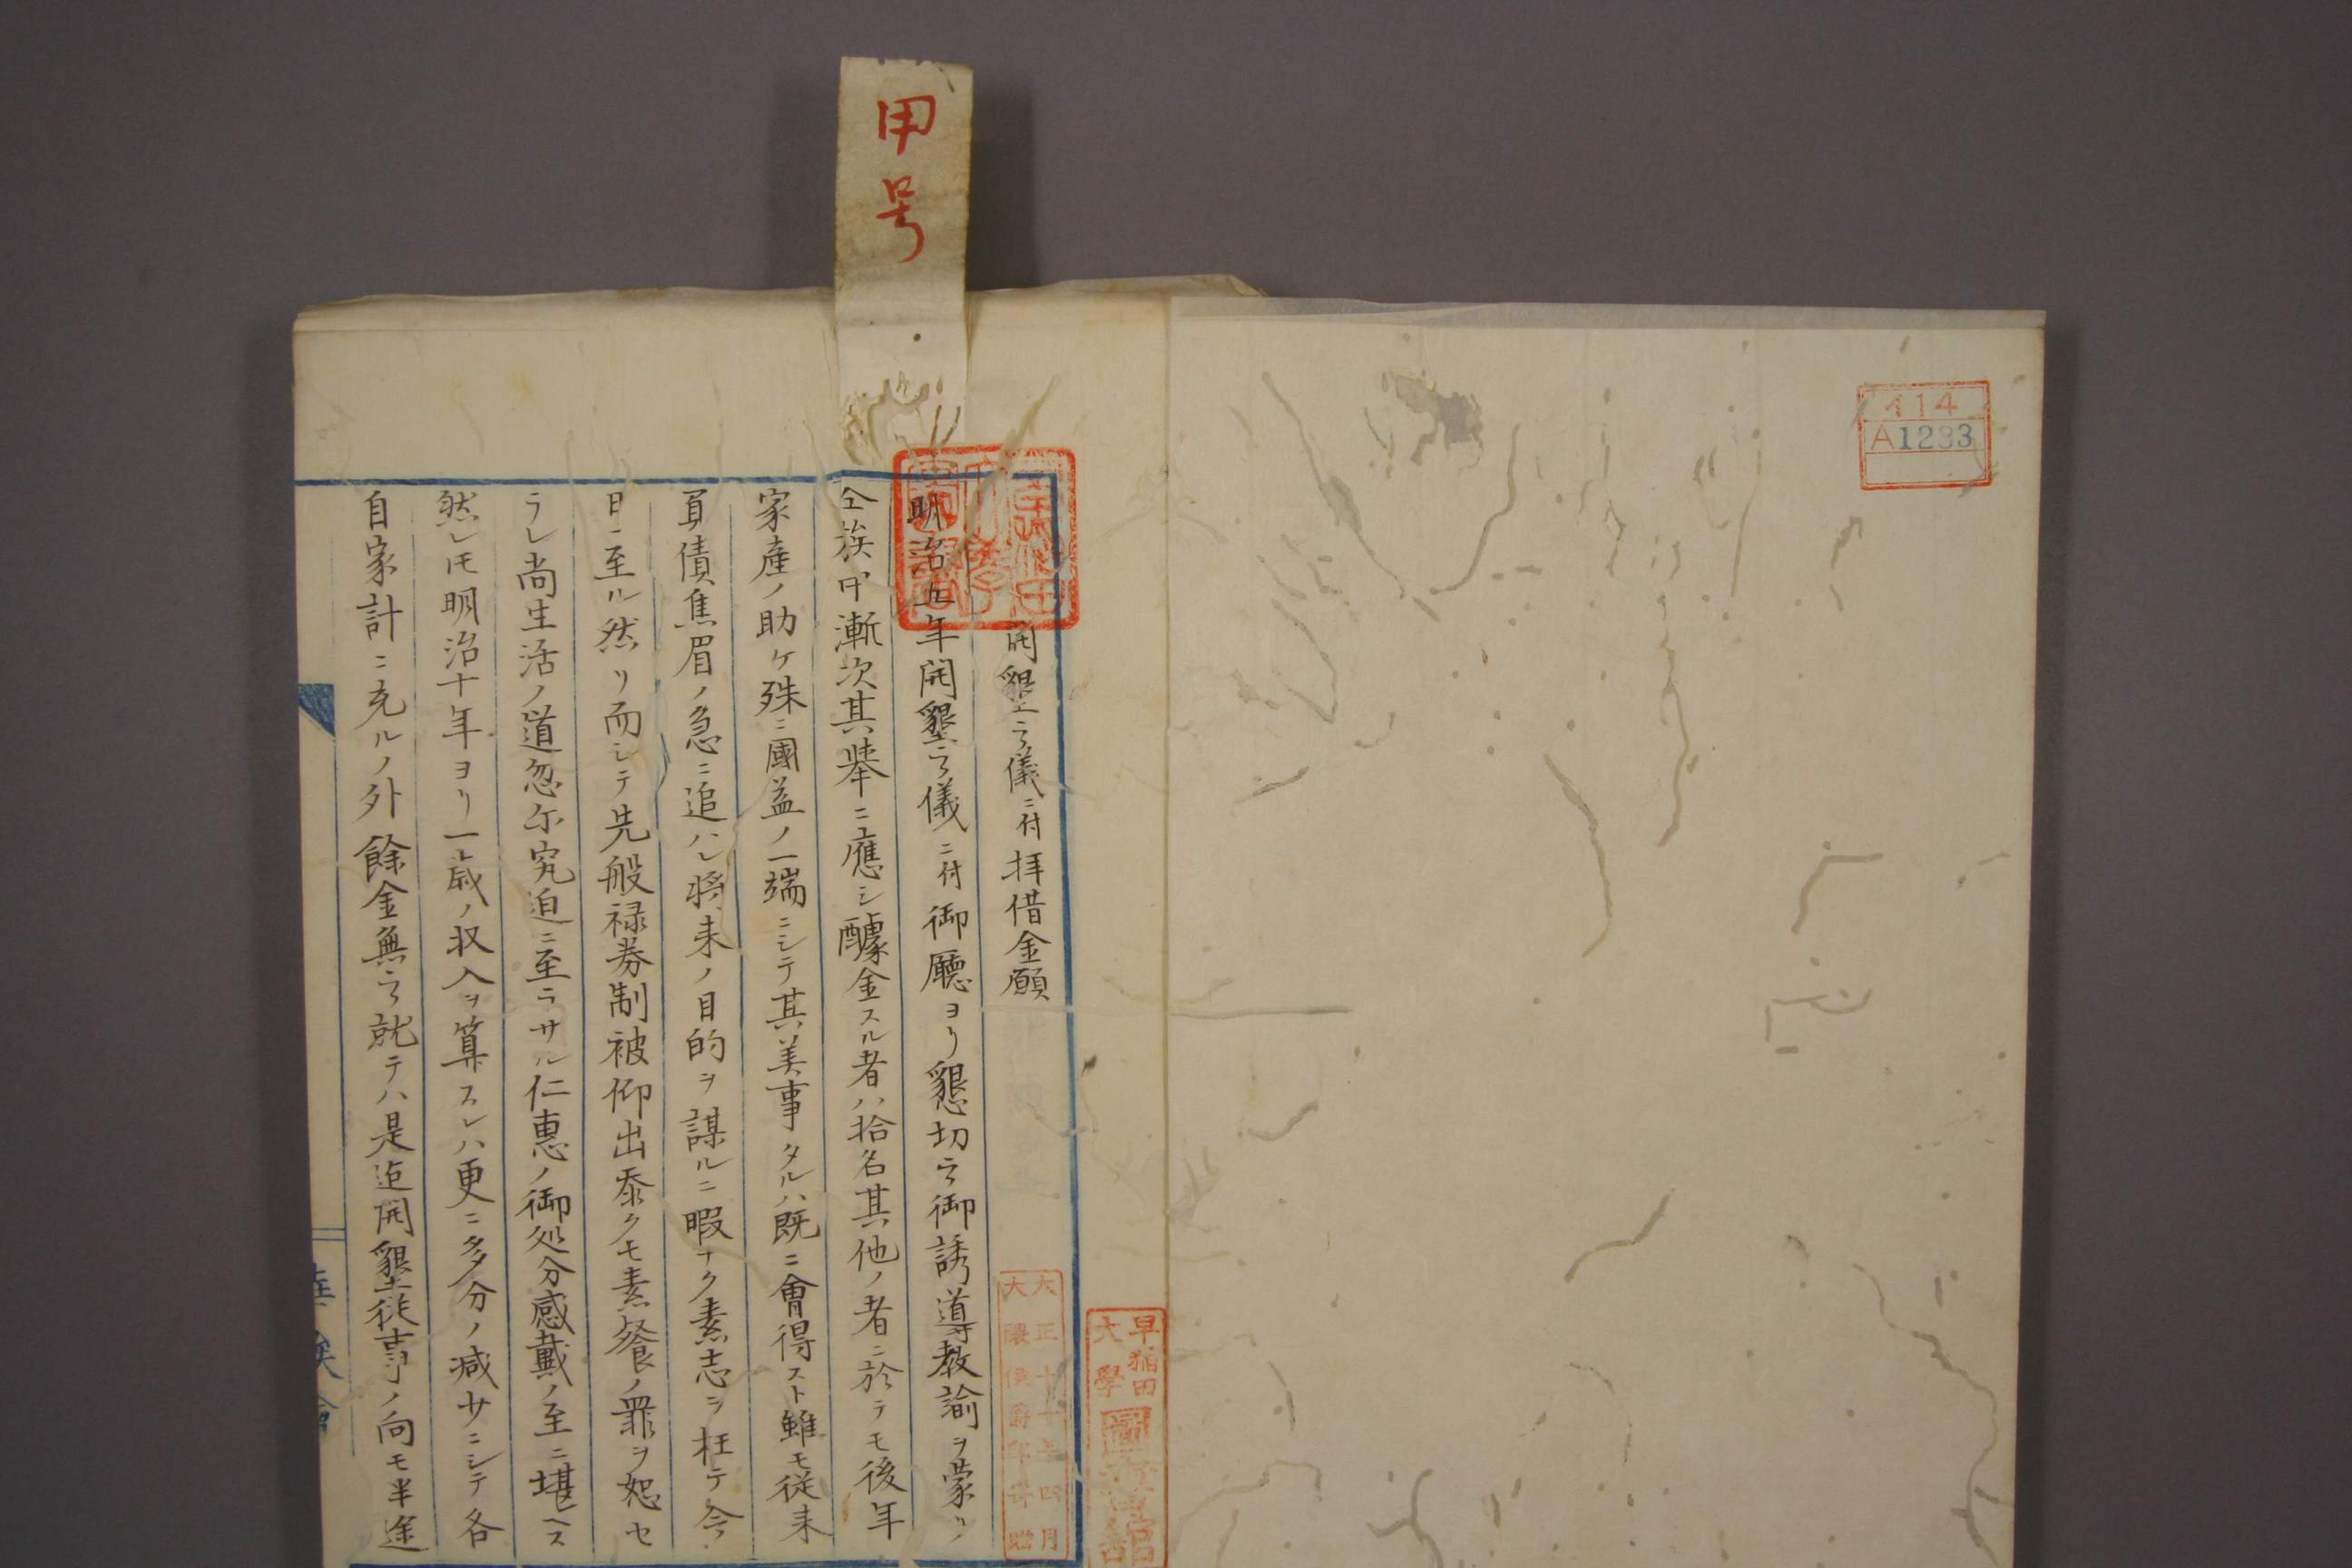 甲号
イ14
A1233
開墾之儀ニ付拝借金願
明治五年開墾之儀ニ付御廳ヨリ懇切之御誘導教諭ヲ蒙リ
仝族中漸次其挙ニ應シ醵金スル者ハ拾名其他ノ者ニ於テモ後年
家産ノ助ケ殊ニ國益ノ一端ニシテ其美事タルハ既ニ會得スト雖モ従来
負債焦眉ノ急ニ追ハレ将来ノ目的ヲ謀ルニ暇ナク素志ヲ枉テ今
日ニ至ル然リ而シテ先般禄券制被仰出忝クモ素餐ノ罪ヲ恕セ
ラレ尚生活ノ道忽尓究迫ニ至ラサル仁恵ノ御処分感戴ノ至ニ堪ヘス
然レ𪜈明治十年ヨリ一歳ノ収入ヲ算スレハ更ニ多分ノ減少ニシテ各
自家計ニ充ルノ外餘金無之就テハ是迠開墾従事ノ向モ半途
大正十一年四月
大隈侯爵邸寄贈
早稲田
大學
圖書
華族會